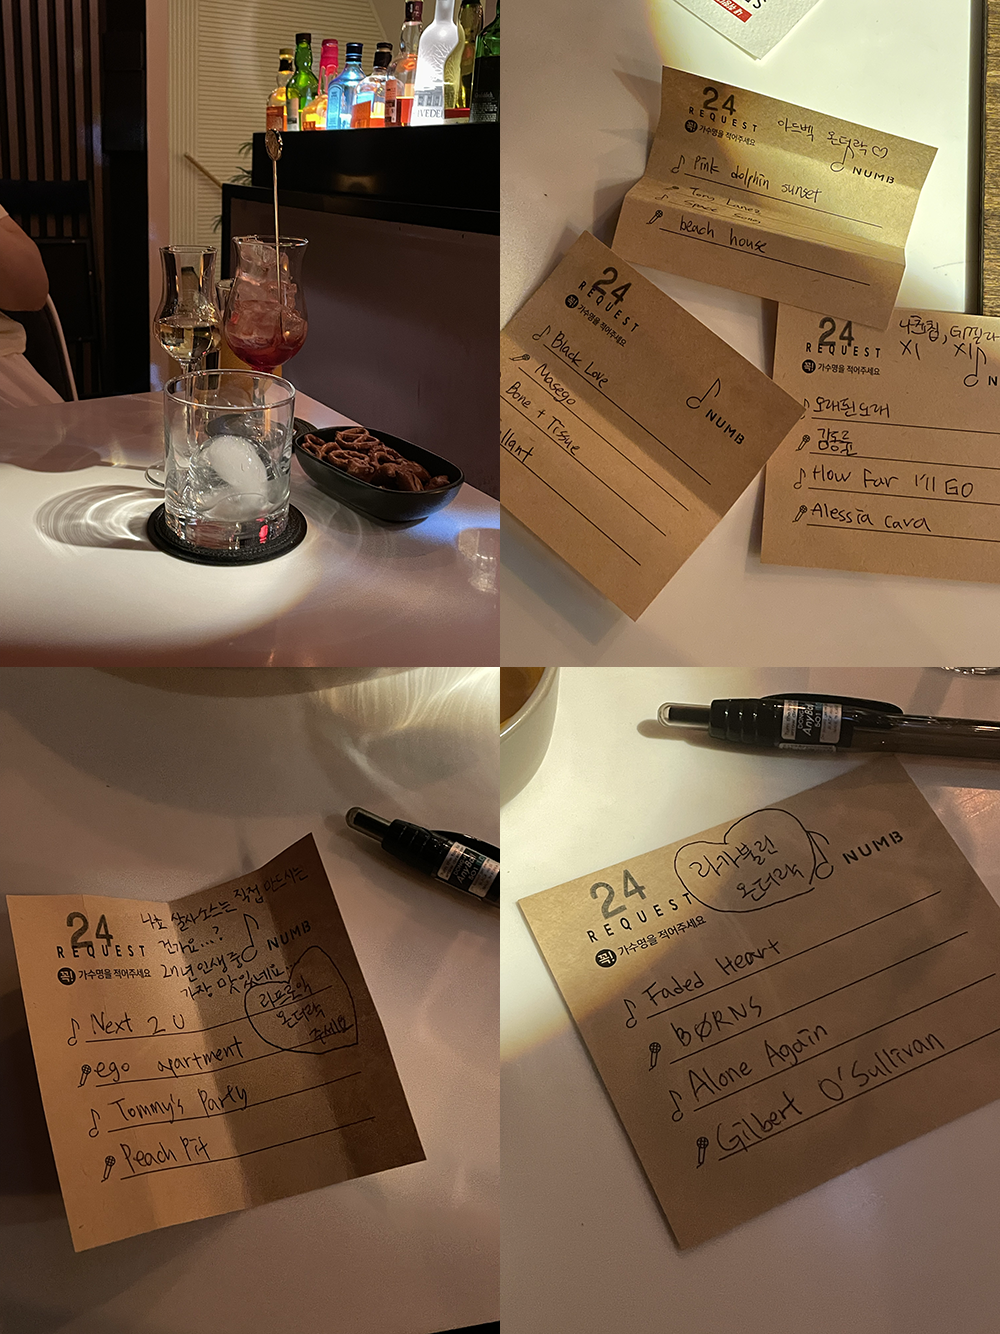 VEDE
24
REQUEST
꼭! 가수명을 적어주세요
아드벡 온더락♡
NUMB
Pink dolphin sunset
Tory Lanez
Space Song
beach house
24
REQUEST
꼭! 가수명을 적어주세요
NUMB
Black Love
Masego
Bone + Tissue
llant
24
REQUEST
꼭! 가수명을 적어주세요
X1 X1
N
오래된 노래
김동률
How Far I'll GO
Alessia Cara
24
REQUEST
꼭! 가수명을 적어주세요
나쵸 살사소스는 직접 만드시는
건가요...?
NUMB
인생 중
가장 맛있네요..
라프로익
온더락
주세요
Next 2 U
ego apartment
Tommy's Party
Peach Pit
AnyBa
24
REQUEST
꼭! 가수명을 적어주세요
라가불린
온더락
NUMB
Faded Heart
BØRNS
Alone Again
Gilbert O'Sullivan